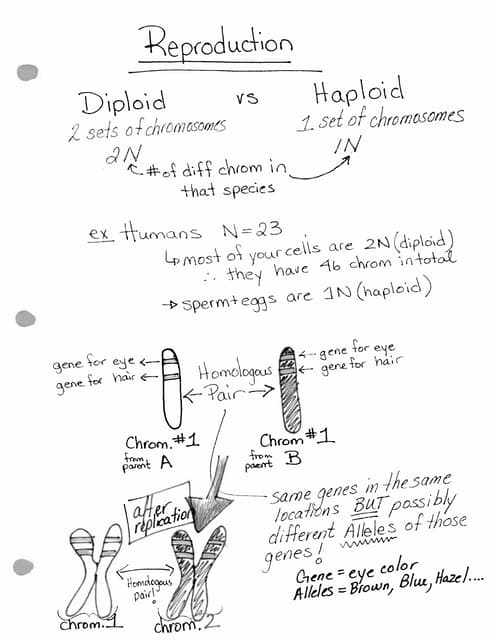 Reproduction
Diploid vs Haploid
2 sets of chromosomes 1 set of chromosomes
2N 1N
# of diff chrom in
that species
ex Humans N=23
↳ most of your cells are 2N (diploid)
∴ they have 46 chrom in total
→ sperm + eggs are 1N (haploid)
gene for eye
gene for hair
Homologous
Pair
gene for eye
gene for hair
Chrom. #1
from parent A
Chrom #1
from parent B
after
replication
Same genes in the same
locations BUT possibly
different Alleles of those
genes!
Gene = eye color
Alleles = Brown, Blue, Hazel....
Homologous
pair!
Chrom. 1
Chrom. 2